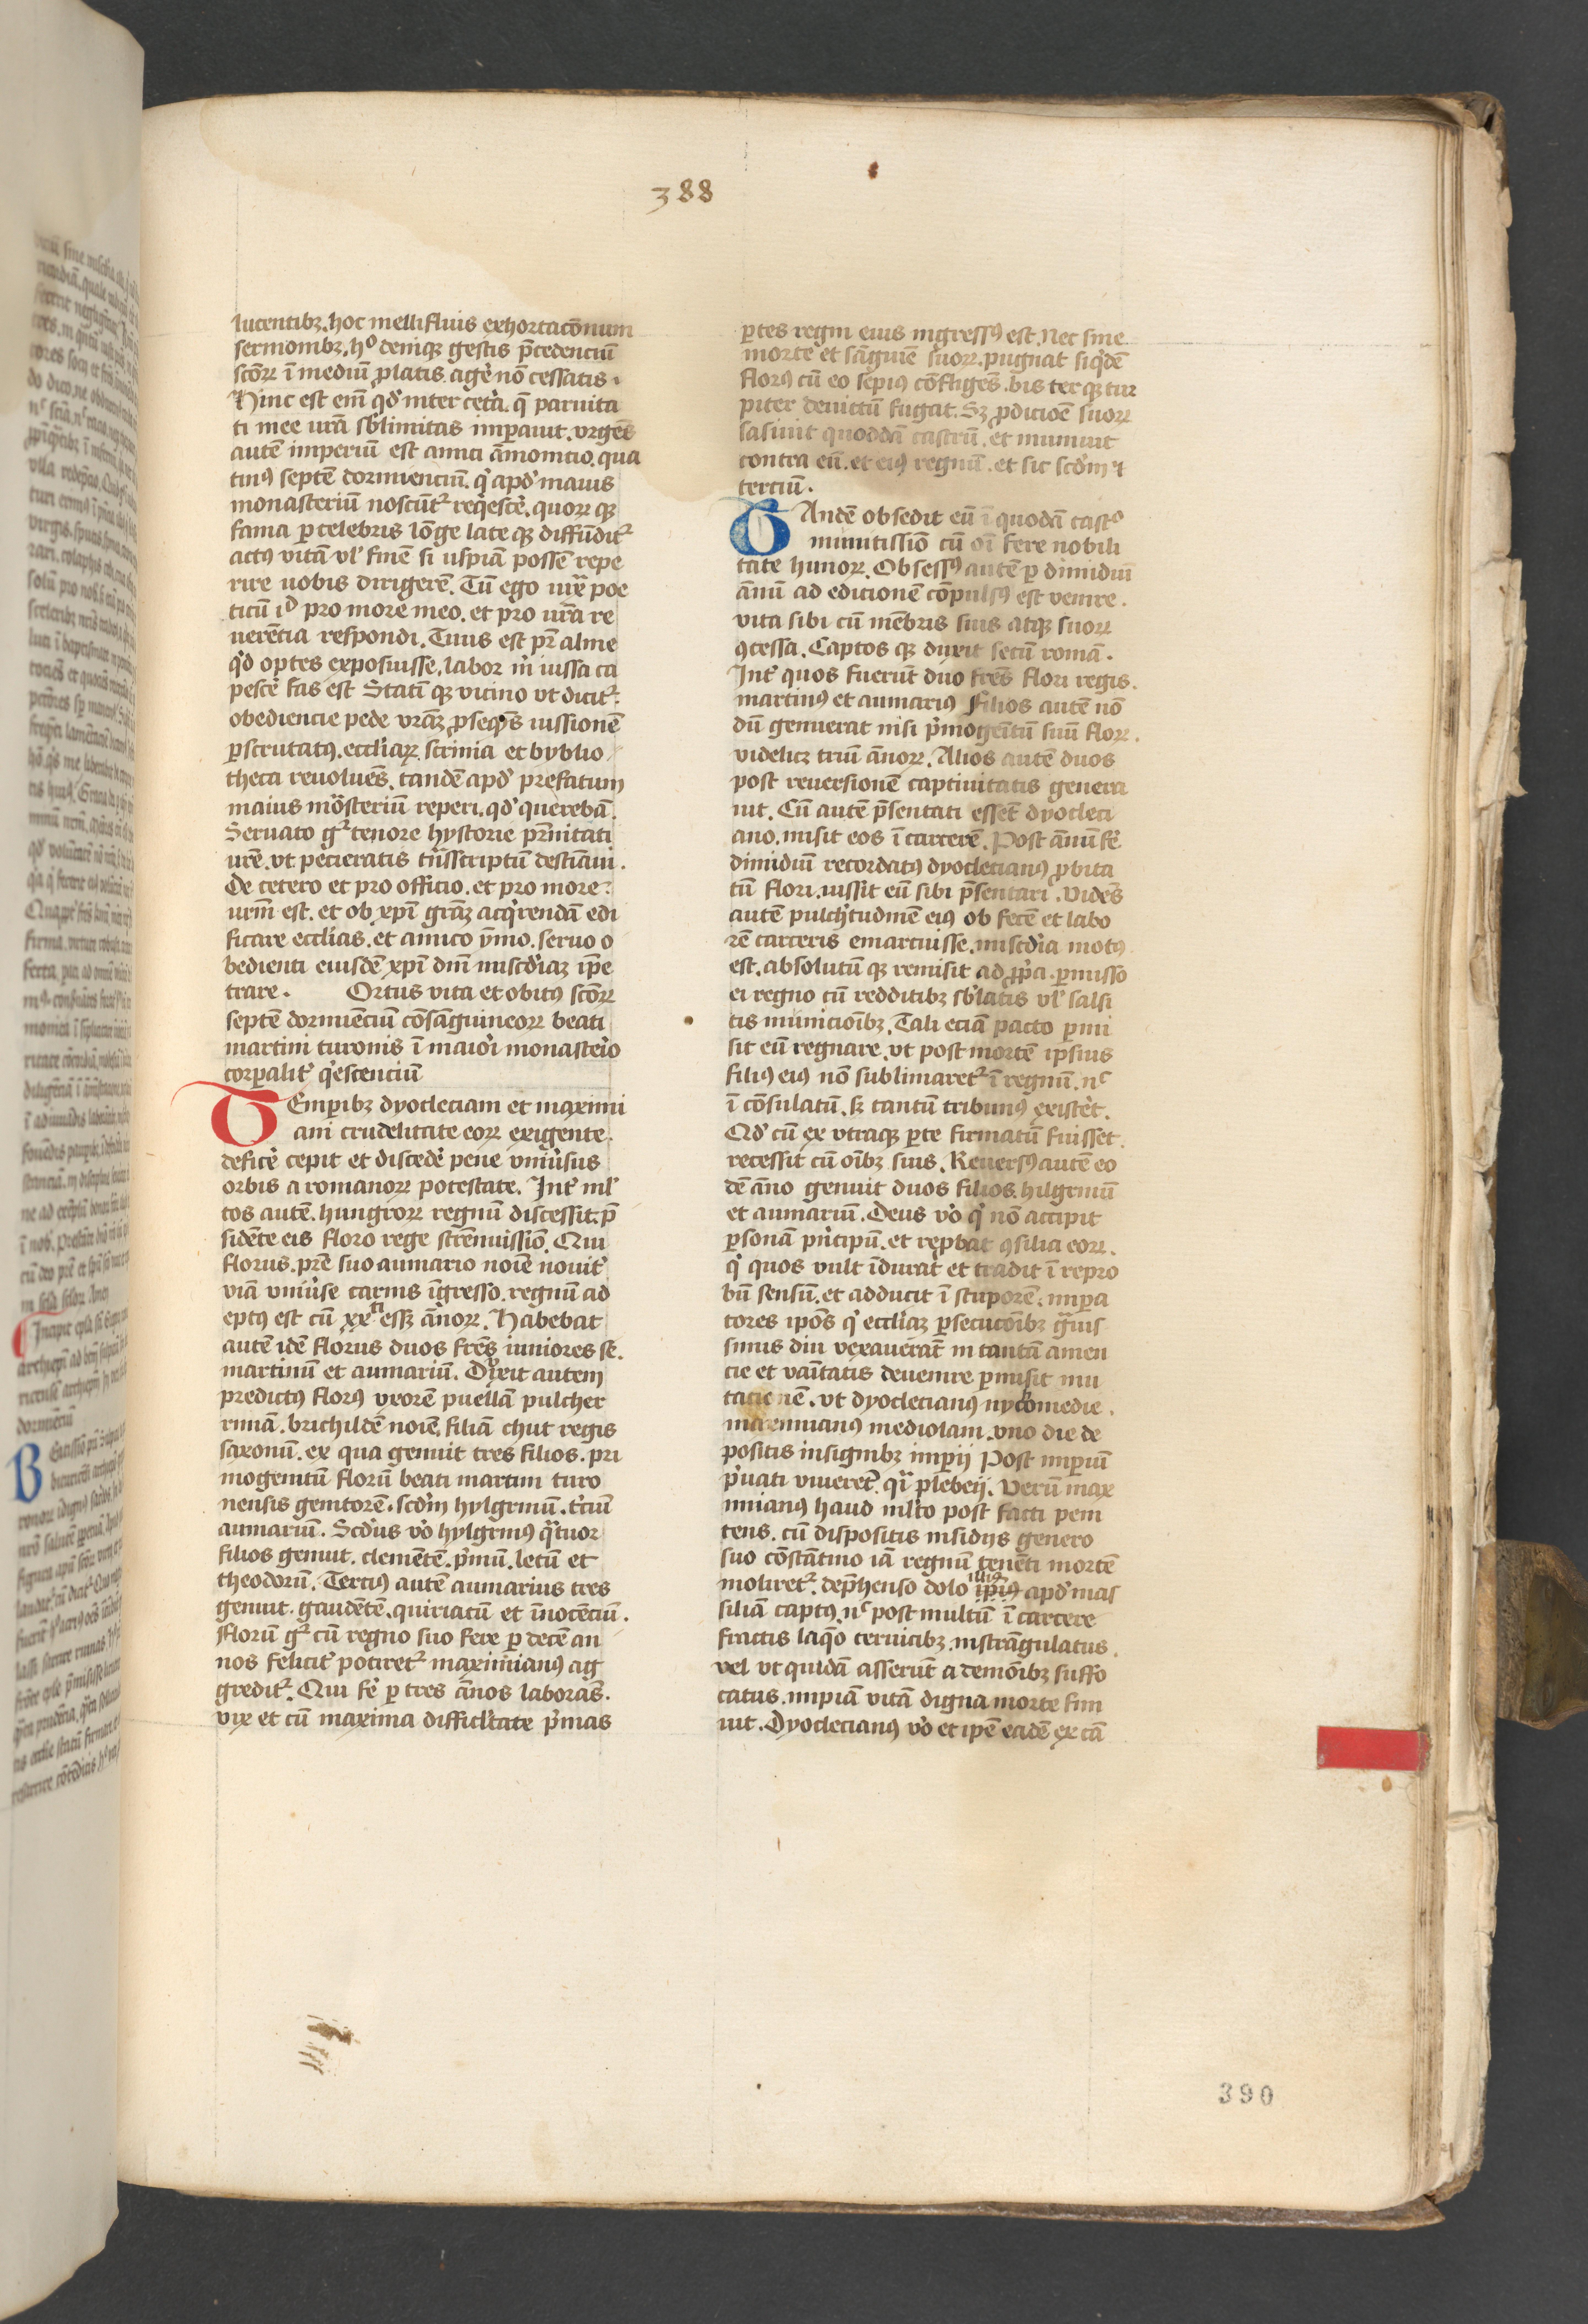 388
lucentibꝫ. hoc mellifluis exhortacōnum
sermonibꝫ. hͦ deniqꝫ gestis p̄cedenciū
scōrꝝ ī mediū ꝓlatis. agē nō cessatis.
Hinc est em̄ qd̓ inter cetā. q̄ paruita
ti mee ur̄a sb̓limitas imꝑauit. vrgēs
autē imperiū est amici āmonicio. qua
tinꝰ septē dormienciū. q̓ apd̓ maius
monasteriū noscūtᷣ req̓escē. quorꝝ qꝫ
fama ꝑcelebris lōge lateqꝫ diffūditᷣ
actꝰ vitā ul̓ finē si uspiā possē repe
rire uobis dirigerē. Tū ego uix̄ poe
ticū iᷣd pro more meo. et pro ur̄a re
uerētia respondi. Tuus est pr̄ alme
qd̓ optes exposuisse, labor m̓ iussa ca
pescē fas est Statī qꝫ vicino vt dicitᷣ.
obediencie pede vrāꝫ ꝓseqēs iussionē
ꝑscrutatꝰ. eccl̓iarꝝ. scrinia et byblio
theca reuoluēs. tandē apd̓ prefatum
maius mōsteriū reperi. qd̓ querebā.
Seruato gͬ tenore hystorie pr̄nitati
ur̄e. vt pecieratis trīsscriptū destīaui.
De cetero et pro officio. et pro more
urm̄ est. et ob xp̄i grāꝫ acq̓rendā edi
ficare eccl̓ias. et amico ȳmo. seruo o
bedienti eiusdē xp̄i dn̄i misc̓diaꝫ ip̄e
trare. Ortus vita et obitꝰ scōrꝝ
septē dormiēciū cōsāguineorꝝ beati
martini turonis ī maiōi monasteīo
corꝑalit̓ q̓escenciū
Temꝑibꝫ dyocleciani et maximi
ani crudelitate eorꝝ exigente.
deficē cepit et discedē pene vniūsus
orbis a romanorꝝ potestate. Int̓ ml̓
tos autē. hungrorꝝ regnū discessit. p̄
sidēte eis floro rege strēnuissiō. Qui
florus. pr̄e suo aumario noīe nouit̓
viā vniūse carnis īgresso. regnū ad
eptꝰ est cū xxᵗⁱ essꝫ ānorꝝ. Habebat
autē idē florus duos fr̄es iuniores se.
martinum et aumariū. Dvxit autem
predictꝰ florꝰ vxorē puellā pulcher
rimā. brichildē noīe. filiā chut regis
saxonū. ex qua genuit tres filios. pri
mogenitū florū beati martini turo
nensis genitorē. scd̓m hylgrinū. t̓ciū
aumariū. Scd̓us vō hylgrinꝰ q̓tuor
filios genuit. clemētē. p̓mū. letū et
theodorū. Terciꝰ autē aumarius tres
genuit. gaudētē. quiriatū et īnocēciū.
florū gͬ cū regno suo fere ꝑ decē an
nos felicit̓ potiretᷣ maximianꝰ ag
greditᷣ. Qui fē ꝑ tres ānos laborās.
vix et cū maxima difficl̓tate p̓mas
ꝑtes regni eius ingressꝰ est. Nec sine
morte et sāguīe suorꝝ. pugnat siq̓dē
florꝰ cū eo sepiꝰ cōfligēs. bis terqꝫ tur
piter deuictū fugat. Sꝫ ꝓdicioē suorꝝ
sasiuit quoddā castrū. et muniuit
contra eū. et eiꝰ regnū. et sic scd̓m et
terciū.
Tandē obsedit eū ī quodā castͦ
munitissiō cū oī fere nobili
tate hunorꝝ. Obsessꝰ autē ꝑ dimidiū
ānū ad edicionē cōpulsꝰ est venire.
vita sibi cū mēbris suis atqꝫ suorꝝ
ꝯcessa. Captos qꝫ duxit secū romā.
Int̓ quos fuerūt duo fr̄es flori regis.
martinꝰ et aumariꝰ Filios autē nō
dū genuerat nisi p̓mogēitū suū florꝝ.
videlicꝫ triū ānorꝝ. Alios autē duos
post reuersionē captiuitatis genera
uit. Cū autē p̄sentati essēt dyocleci
ano. misit eos ī carcerē. Post ānū fē
dimidiū recordatꝰ dyoclecianꝰ ꝓbita
tū flori. iussit eū sibi p̄sentari. Vidēs
autē pulch̓tudinē eiꝰ ob fetē et labo
rē carceris emarcuisse. misc̓dia motꝰ
est. absolutū qꝫ remisit ad ꝓp̓a. ꝑmisso
ei regno cū redditibꝫ sb̓latis ul̓ salsi
tis municiōibꝫ. Tali eciā pacto ꝑmi
sit eū regnare. vt post mortē ipsius
filiꝰ eiꝰ nō sublimaretᷣ ī regnū. nᷦ
ī cōsulatū. sꝫ tantū tribunꝰ existēt.
Qd̓ cū ex vtraqꝫ ꝑte firmatū fuisset.
recessit cū oībꝫ suis. Reuersꝰ autē eo
dē āno genuit duos filios. hilgrinū
et aumariū. Deus vō q̓ nō accipit
ꝑsonā p̓ncipū. et reꝓbat ꝯsilia eorꝝ.
q̓ quos vult īdurat et tradit ī repro
bū sensū. et adducit ī stuporē. imꝑa
tores ipōs q̓ eccl̓iaꝫ ꝑsecucōibꝫ gͣuis
simis diu vexauerāt in tantā amen
cie et vanītatis deuenire ꝑmisit mu
tacionē. vt dyoclecianꝰ nykomedie.
maximianꝰ mediolani. vno die de
positis insignibꝫ imꝑii Post imꝑiū
p̓uati viuerēt. qͣi plebeij. Verū max
imianꝰ haud ml̓to post facti peni
tens. cū dispositis insidijs genero
suo cōstātino iā regnū tenēti mortē
moliretᷣ. dep̄henso dolo illiꝰ ip̄iꝰ apd̓ mas
siliā captꝰ. nᷦ post multū ī carcere
fractis laq̓o ceruicibꝫ. instrāgulatus.
vel vt quidā asserūt a demōibꝫ suffo
catus. impiā vitā digna morte fini
uit. Dyoclecianꝰ vō et ip̄e eadē ex cā
390